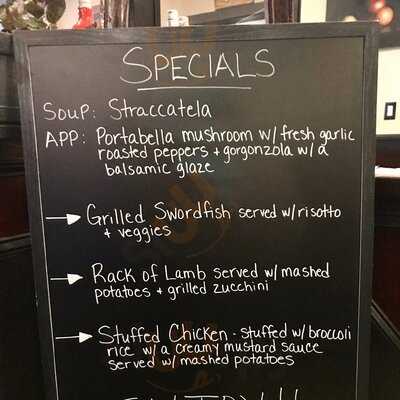 SPECIALS
SOUP: Straccatela
APP: Portabella mushroom w/ fresh garlic
roasted peppers + gorgonzola w/ a
balsamic glaze
→ Grilled Swordfish served w/ risotto
+ veggies
→ Rack of Lamb served w/ mashed
potatoes + grilled zucchini
→ Stuffed Chicken - stuffed w/ broccoli
rice w/ a creamy mustard sauce
served w/ mashed potatoes